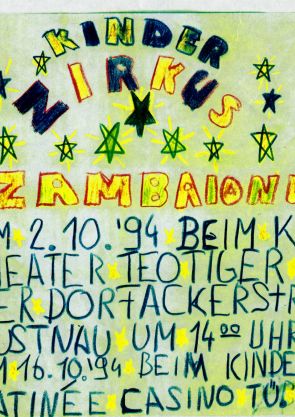 KINDER
ZIRKUS
ZAMBAIONI
M 2.10.'94 BEIM K
EATER TEOTIGER
ER DORFACKERSTR
USTNAU UM 14 00 UHR
M 16.10.'94 BEIM KINDE
ATINÉE CASINO TÜB